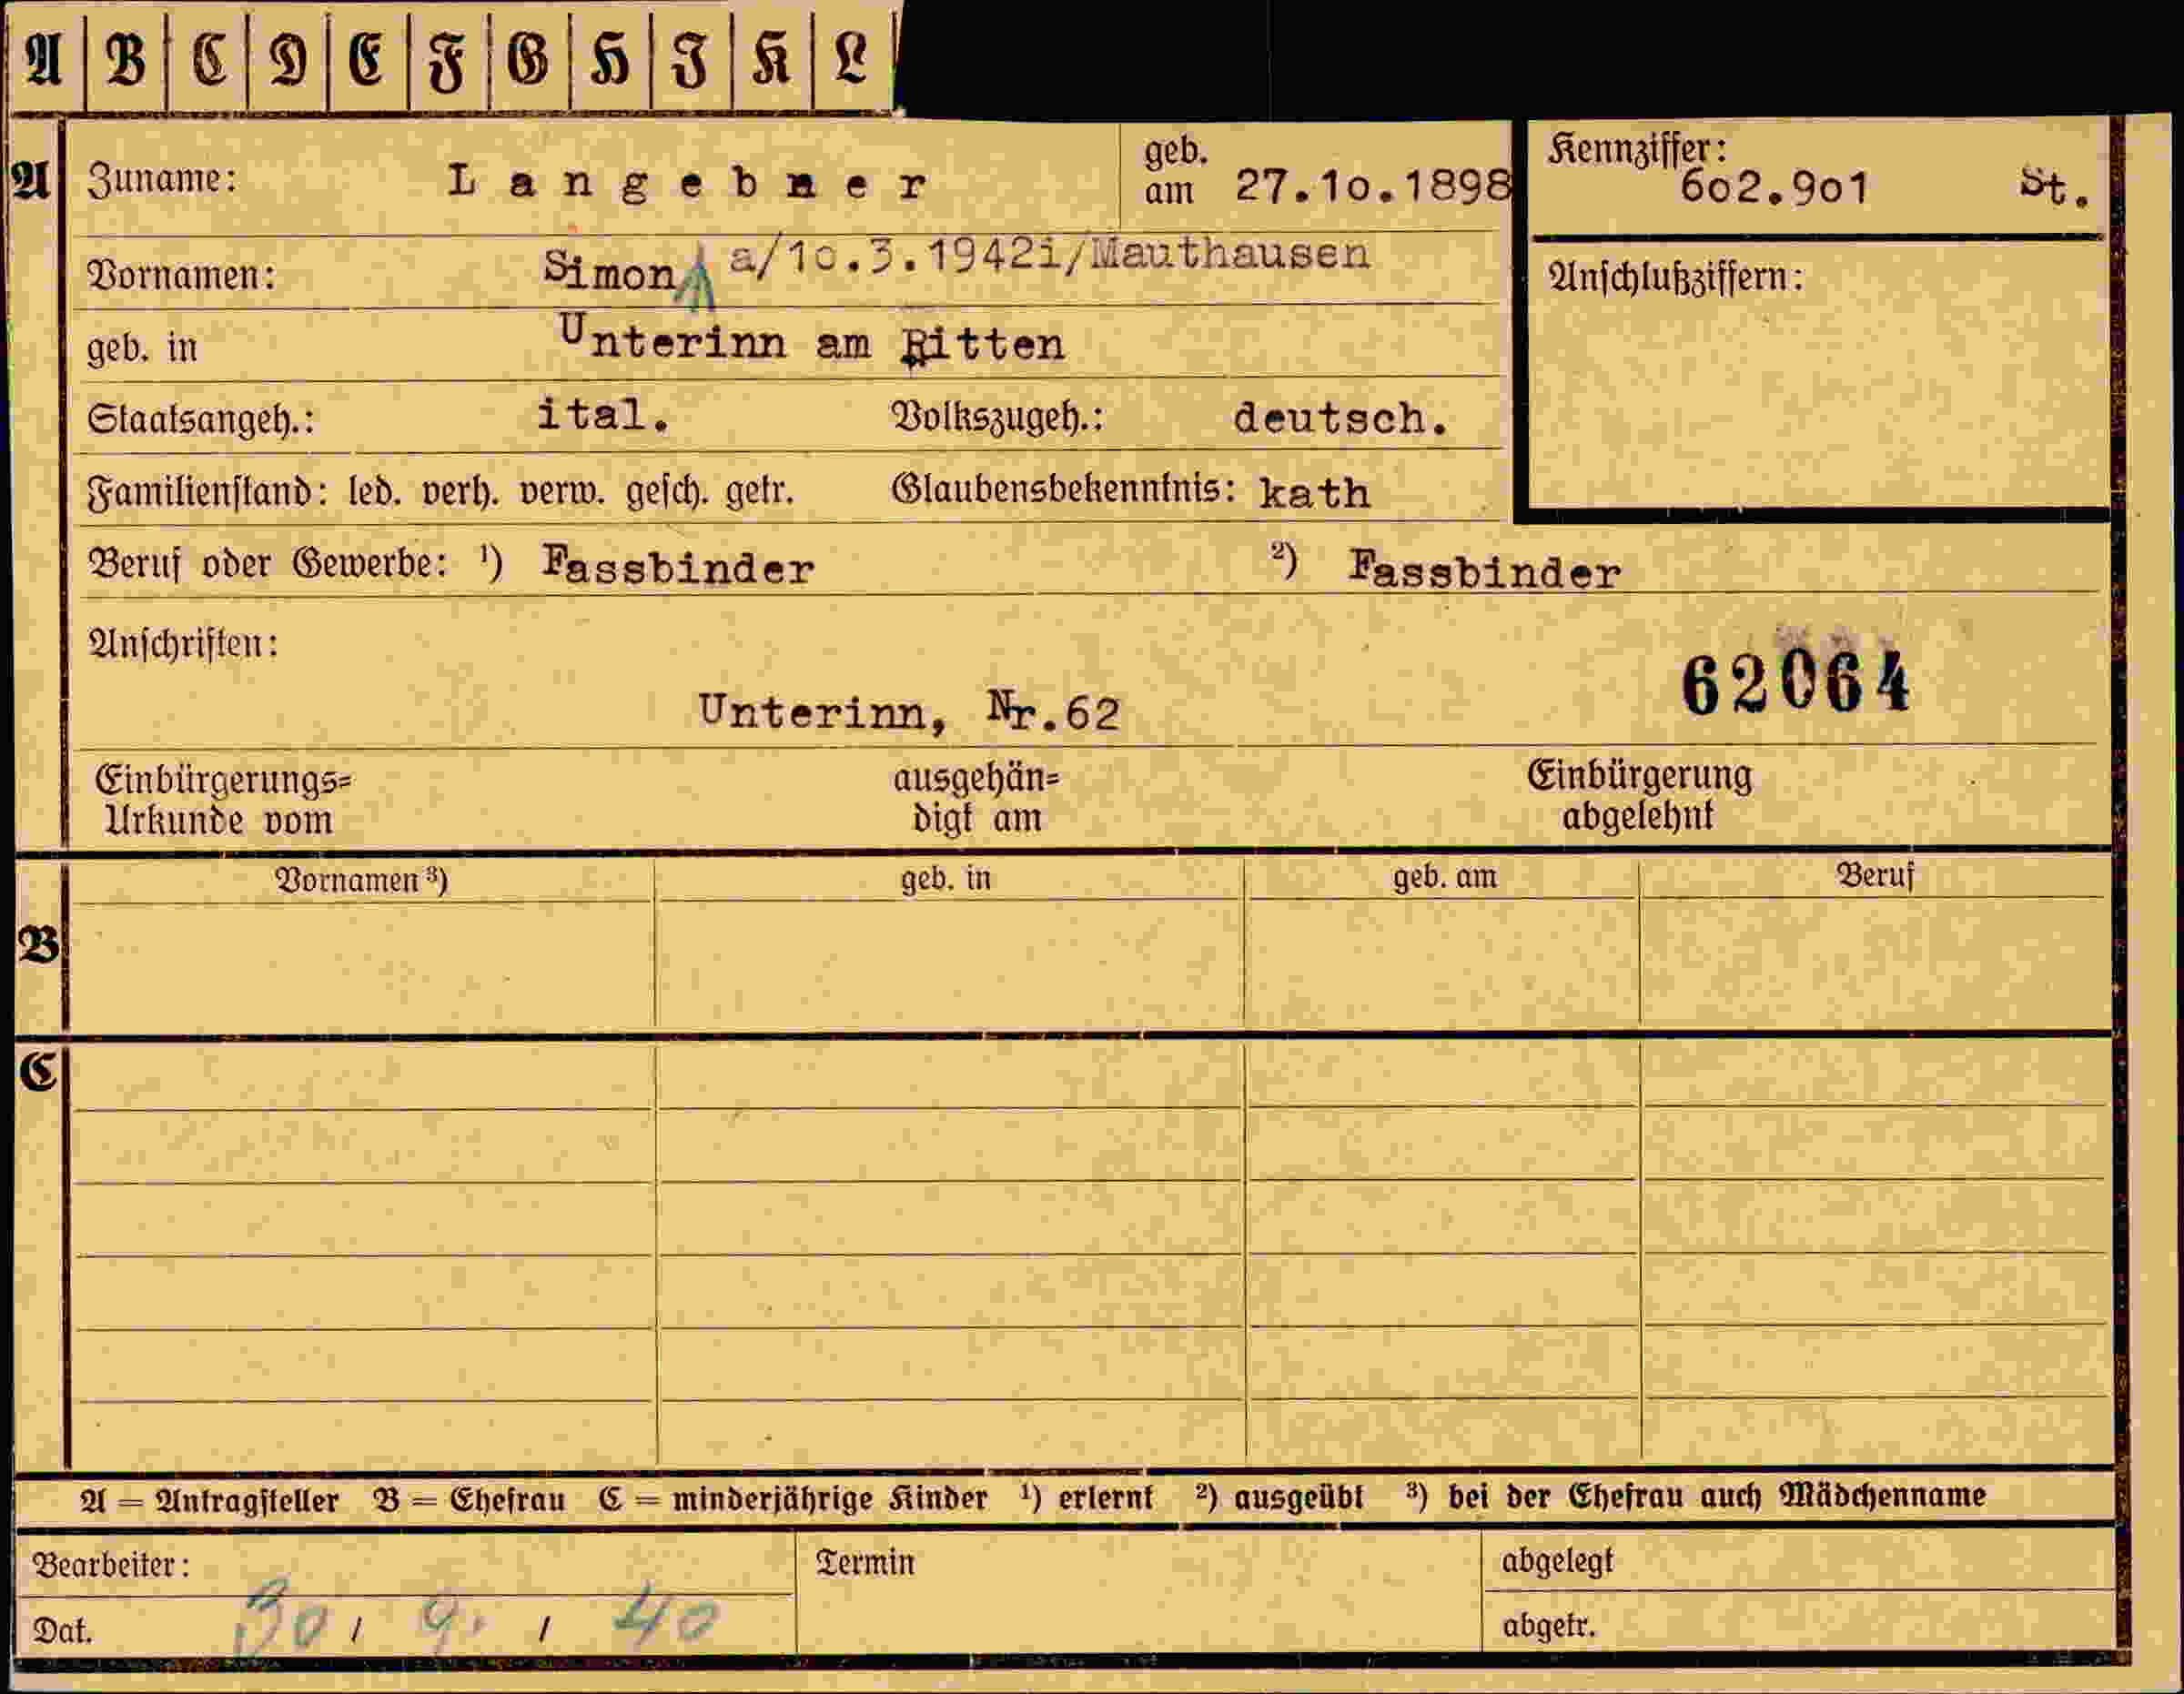 A B C D E F G H I K L
A Zuname: Langebner geb. am 27.1o.1898 Kennziffer: 6o2.9o1 St.
Vornamen: Simon a/1o.3.1942i/Mauthausen Anschlußziffern:
geb. in Unterinn am Ritten
Staatsangeh.: ital. Volkszugeh.: deutsch.
Familienstand: led. verh. verw. gesch. getr. Glaubensbekenntnis: kath
Beruf oder Gewerbe: ¹) Fassbinder ²) Fassbinder
Anschriften:
62064
Unterinn, Nr.62
Einbürgerungs= ausgehän= Einbürgerung
Urkunde vom digt am abgelehnt
Vornamen ³) geb. in geb. am Beruf
B
C
A = Antragsteller B = Ehefrau C = minderjährige Kinder ¹) erlernt ²) ausgeübt ³) bei der Ehefrau auch Mädchenname
Bearbeiter: Termin abgelegt
Dat. 30 / 9. / 40 abgetr.